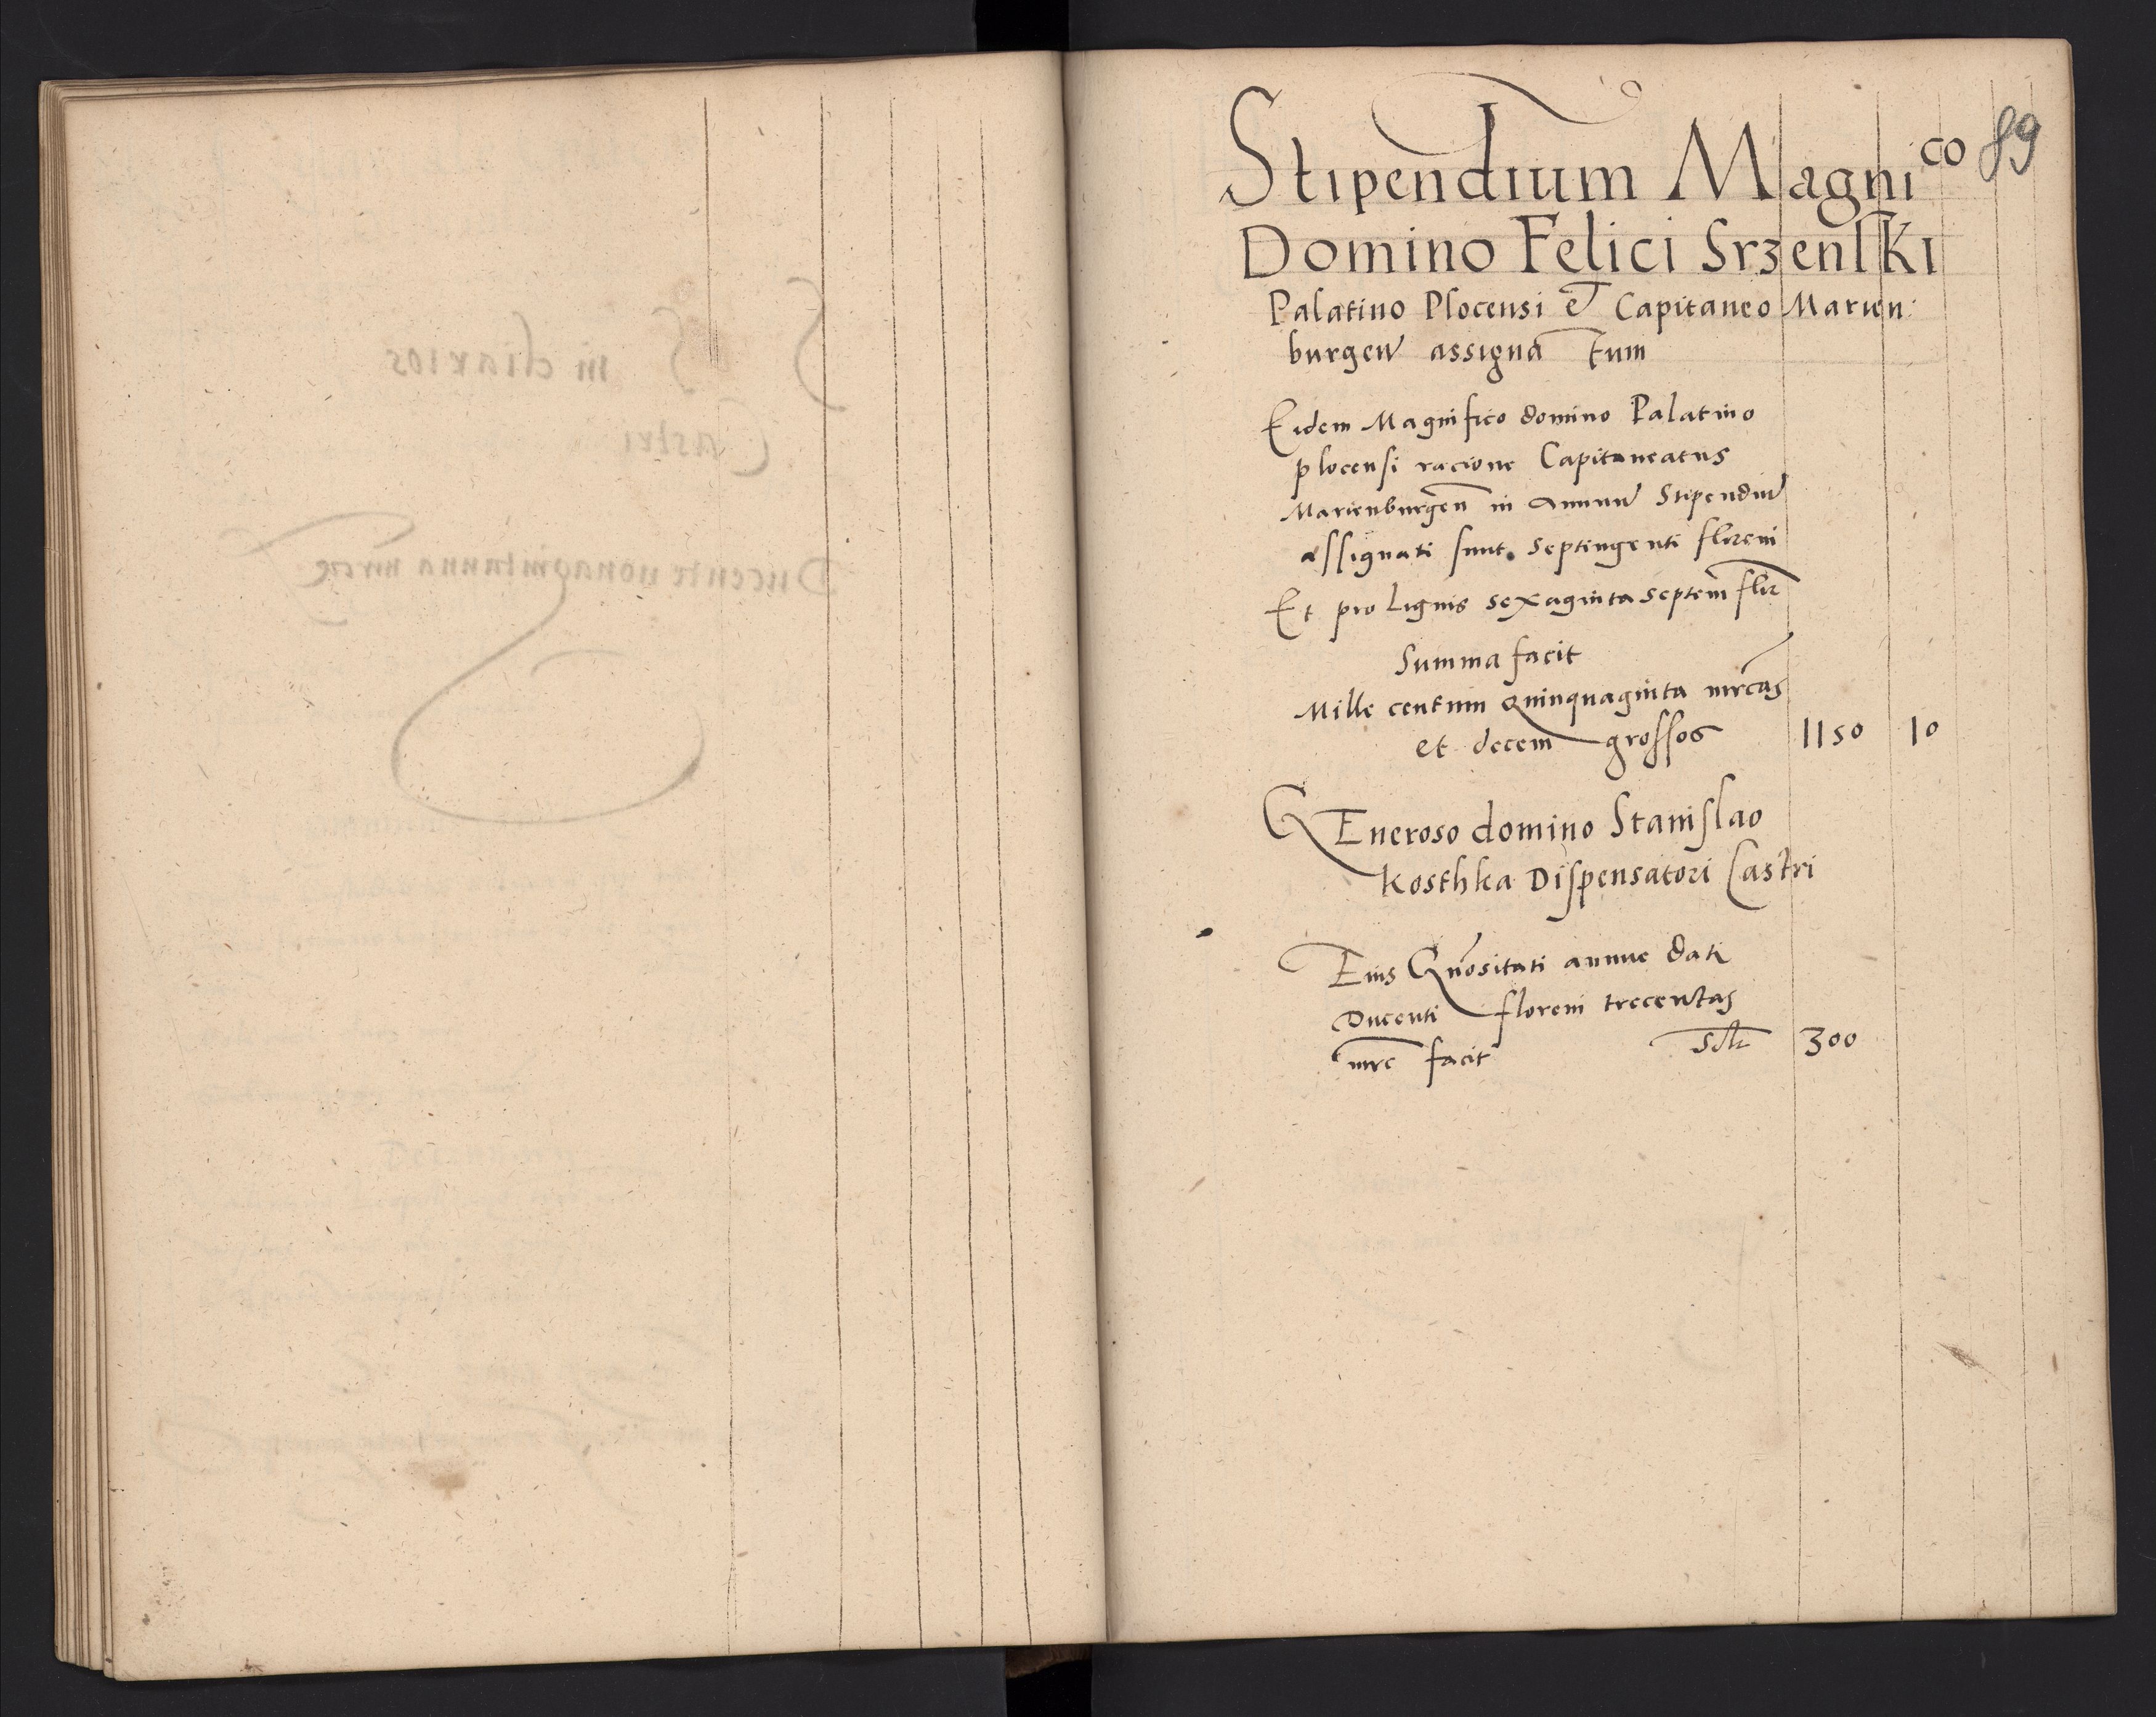 89
Stipendium Magni^co
Domino Felici Srzenſki
Palatino Plocensi et Capitaneo Marien:
burgen̄ assigna tum
Eidem Magnifico domino Palatino
plocensi racione Capitaneatus
Marienburgen̄ in Annuū Stipendiū
assignati sunt septingenti floreni
Et pro Lignis sexaginta septem̄ flor̄
Summa facit
Mille centum Quinquaginta mrcas
et decem grossos 1150 10
GEneroso domino Staniſlao
Kosthka Diſpensatori Castri
Eius Gn̄ositati annue dati
Ducenti floreni trecentas
mrc̄ facit 300